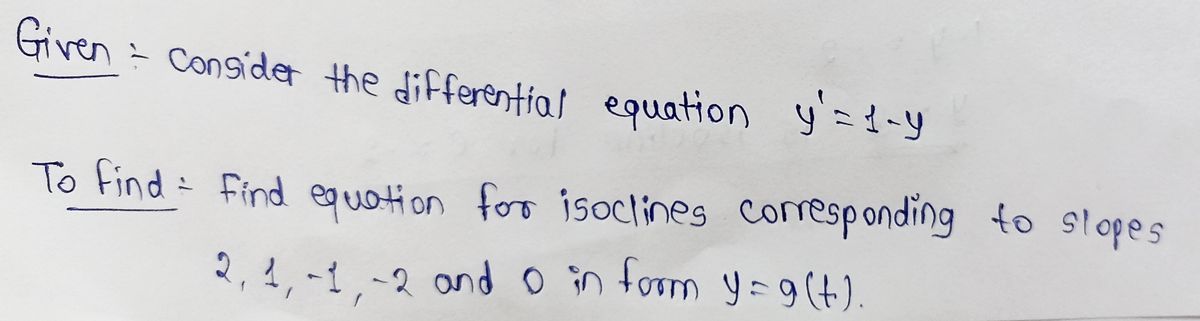 Given :- Consider the differential equation y' = 1-y
To find :- Find equation for isoclines corresponding to slopes
2, 1, -1, -2 and 0 in form y = g(t).